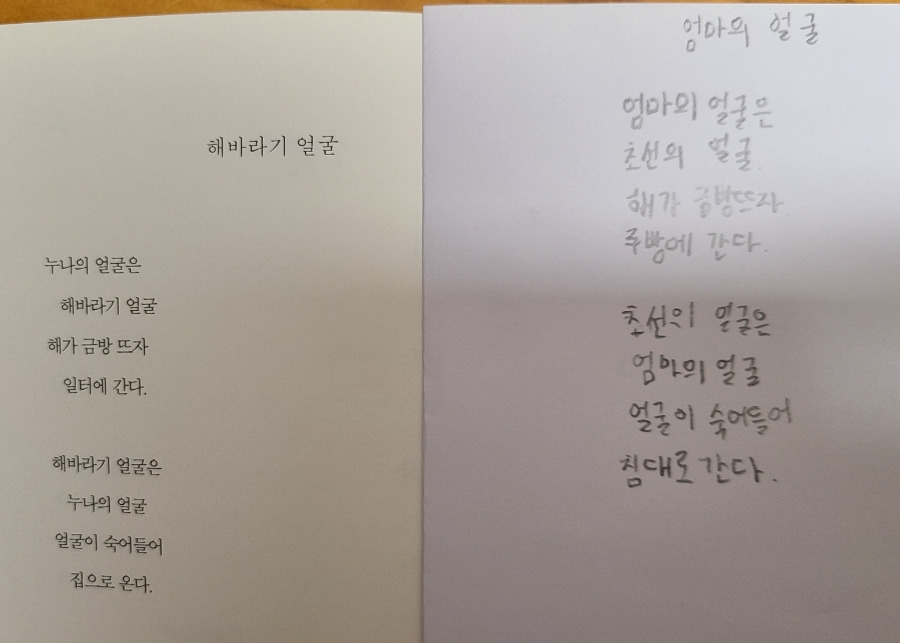 해바라기 얼굴
누나의 얼굴은
해바라기 얼굴
해가 금방 뜨자
일터에 간다.
해바라기 얼굴은
누나의 얼굴
얼굴이 숙어들어
집으로 온다.
엄마의 얼굴
엄마의 얼굴은
초선의 얼굴.
해가 금방뜨자.
주방에 간다.
초선의 얼굴은
엄마의 얼굴
얼굴이 숙어들어
침대로 간다.